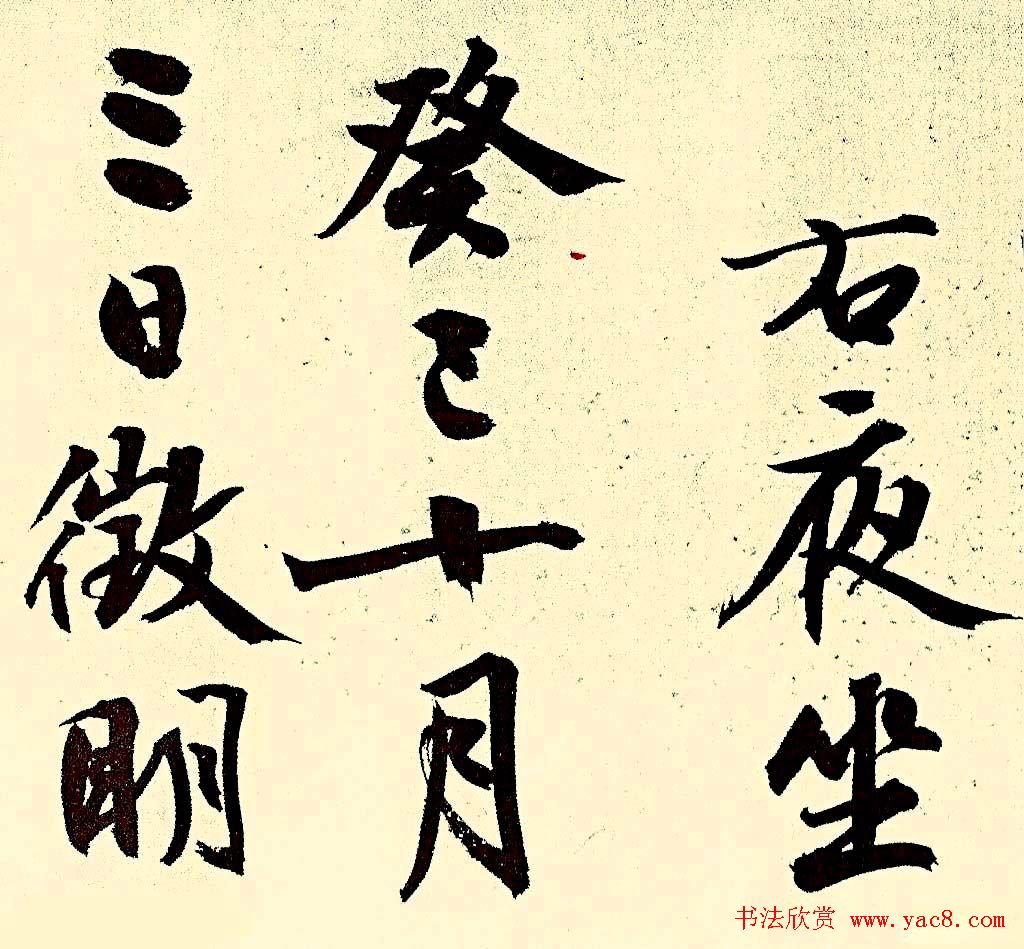 右夜坐
癸巳十月
三日徵明
书法欣赏 www.yac8.com